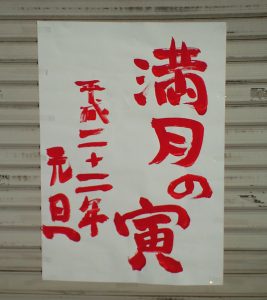 満月の寅
平成二十二年
元旦